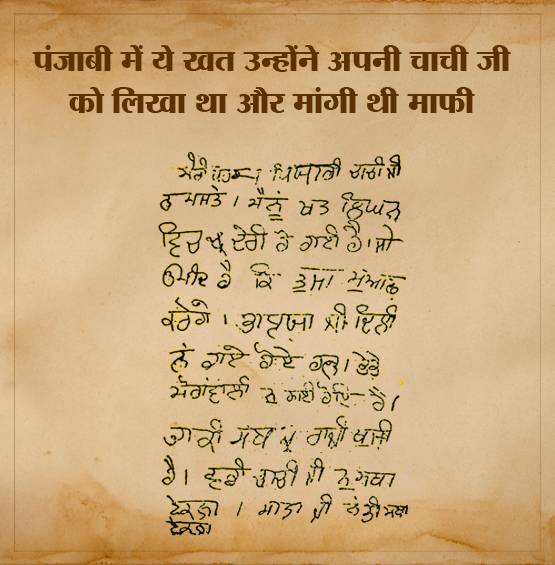 पंजाबी में ये खत उन्होंने अपनी चाची जी
को लिखा था और मांगी थी माफी
ਮੇਰੀ ਪਿਆਰੀ ਚਾਚੀ ਜੀ
ਨਮਸਤੇ । ਮੈਨੂੰ ਖਤ ਲਿਖਨ
ਵਿਚ ਦੇਰੀ ਹੋ ਗਈ ਹੈ । ਸੋ
ਉਮੀਦ ਹੈ ਕਿ ਤੁਸਾ ਮੁਆਫ
ਕਰੋਗੇ । ਭਾਈਯਾ ਜੀ ਦਿਲੀ
ਨੂੰ ਗਏ ਹੋਏ ਹਨ । ਬੇਬੇ
ਮੋਰਾਂਵਾਲੀ ਨੂੰ ਗਈ ਹੋਈ ਹੈ ।
ਬਾਕੀ ਸਬ ਰਾਜੀ ਖੁਸ਼ੀ
ਹੈ । ਵਡੀ ਚਾਚੀ ਜੀ ਨੂੰ ਮਥਾ
ਟੇਕਣਾ । ਮਾਤਾ ਜੀ ਮਥਾ
ਟੇਕਣਾ